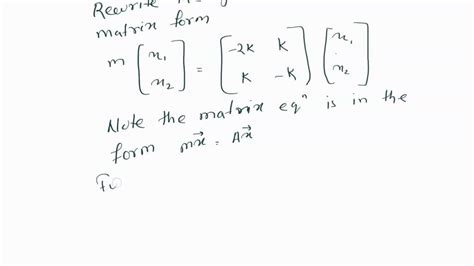 Rewrite
matrix form
m [x1 x2] = [-2k k k -k] [x1 x2]
Note the matrix eqn is in the
form mx⃗ = Ax⃗